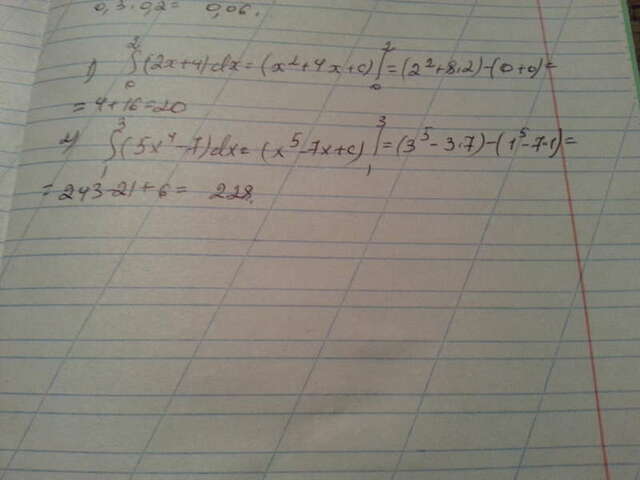 0,3 · 0,2 = 0,06.
1) ∫₀² (2x+4)dx = (x²+4x+c)|₀² = (2²+8·2)-(0+0) =
= 4+16=20
2) ∫₁³ (5x⁴-7)dx = (x⁵-7x+c)|₁³ = (3⁵-3·7)-(1⁵-7·1) =
= 243-21+6 = 228.